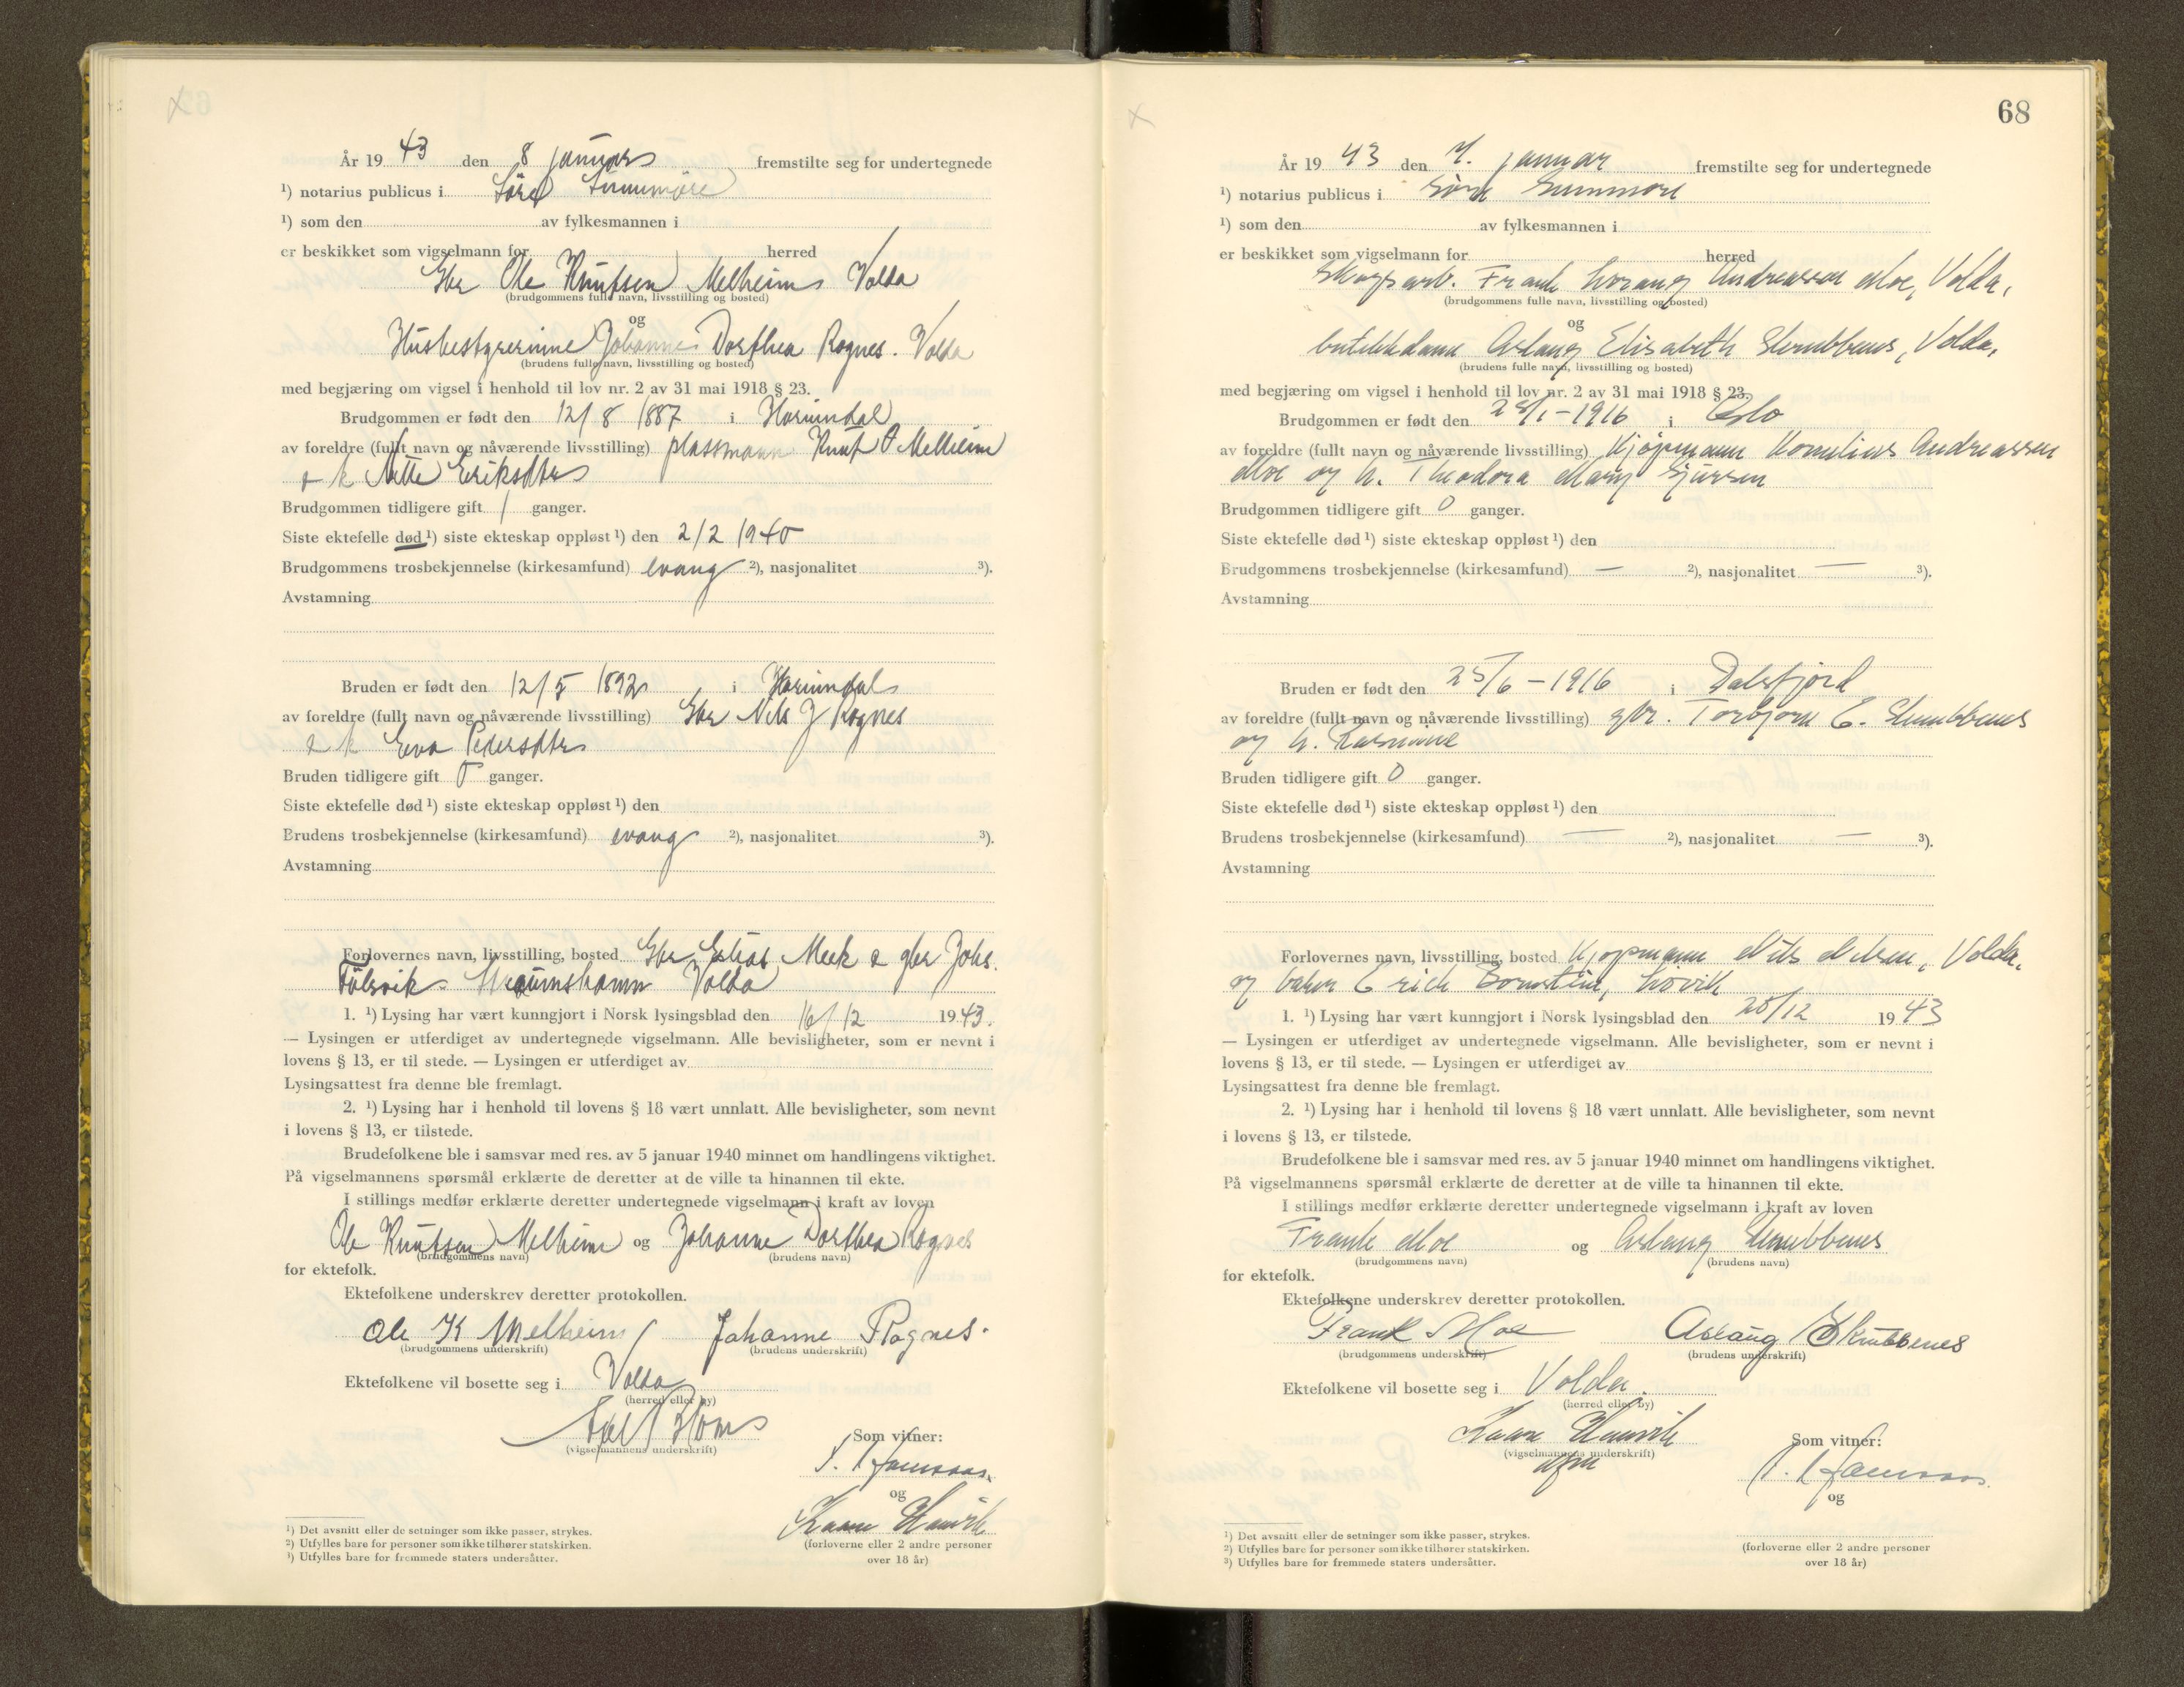 År 19 43 den 8 januar fremstilte seg for undertegnede
¹) notarius publicus i Søre Sunnmøre
¹) som den av fylkesmannen i
er beskikket som vigselmann for herred
Gbr Ole Knutsen Melheim Volda
(brudgommens fulle navn, livsstilling og bosted)
og
Husbestyrerinne Johanne Dorthea Rognes. Volda
(brudens fulle navn, livsstilling og bosted)
med begjæring om vigsel i henhold til lov nr. 2 av 31 mai 1918 § 23.
Brudgommen er født den 12/8 1887 i Hornindal
av foreldre (fullt navn og nåværende livsstilling) plassmann Knut O Melheim
o h Nette Eriksdtr
Brudgommen tidligere gift 1 ganger.
Siste ektefelle død ¹) siste ekteskap oppløst ¹) den 2/2 1940
Brudgommens trosbekjennelse (kirkesamfund) evang ²), nasjonalitet ³).
Avstamning
Bruden er født den 12/5 1892 i Hornindal
av foreldre (fullt navn og nåværende livsstilling) Gbr Nils J Rognes
o h Eva Pedersdtr
Bruden tidligere gift 0 ganger.
Siste ektefelle død ¹) siste ekteskap oppløst ¹) den
Brudens trosbekjennelse (kirkesamfund) evang ²), nasjonalitet ³).
Avstamning
Forlovernes navn, livsstilling, bosted Gbr Elias Mek o gbr Johs.
Straumshamn Volda
1. ¹) Lysing har vært kunngjort i Norsk lysingsblad den 16/12 19 43.
— Lysingen er utferdiget av undertegnede vigselmann. Alle bevisligheter, som er nevnt i
lovens § 13, er til stede. — Lysingen er utferdiget av
Lysingsattest fra denne ble fremlagt.
2. ¹) Lysing har i henhold til lovens § 18 vært unnlatt. Alle bevisligheter, som nevnt
i lovens § 13, er tilstede.
Brudefolkene ble i samsvar med res. av 5 januar 1940 minnet om handlingens viktighet.
På vigselmannens spørsmål erklærte de deretter at de ville ta hinannen til ekte.
I stillings medfør erklærte deretter undertegnede vigselmann i kraft av loven
Ole Knutsen Melheim og Johanne Dorthea Rognes
(brudgommens navn) (brudens navn)
for ektefolk.
Ektefolkene underskrev deretter protokollen.
Ole K Melheim Johanne Rognes.
(brudgommens underskrift) (brudens underskrift)
Ektefolkene vil bosette seg i Volda
(herred eller by)
(vigselmannens underskrift)
Som vitner:
og
Kaare Hamvik
(forloverne eller 2 andre personer
over 18 år)
¹) Det avsnitt eller de setninger som ikke passer, strykes.
²) Utfylles bare for personer som ikke tilhører statskirken.
³) Utfylles bare for fremmede staters undersåtter.
68
År 19 43 den 7. januar fremstilte seg for undertegnede
¹) notarius publicus i Søre Sunnmøre
¹) som den av fylkesmannen i
er beskikket som vigselmann for herred
Skogsarb. Frank Lorang Andreassen Moe, Volda,
(brudgommens fulle navn, livsstilling og bosted)
og
butikkdame Aslaug Elisabeth Skrubbenes, Volda,
(brudens fulle navn, livsstilling og bosted)
med begjæring om vigsel i henhold til lov nr. 2 av 31 mai 1918 § 23.
Brudgommen er født den 28/1-1916 i Oslo
av foreldre (fullt navn og nåværende livsstilling) Kjøpmann Kornelius Andreassen
Moe og h. Theodora Mary Gjursen
Brudgommen tidligere gift 0 ganger.
Siste ektefelle død ¹) siste ekteskap oppløst ¹) den
Brudgommens trosbekjennelse (kirkesamfund) — ²), nasjonalitet — ³).
Avstamning
Bruden er født den 25/6-1916 i Dalsfjord
av foreldre (fullt navn og nåværende livsstilling) gbr. Torbjørn E. Skrubbenes
og h. Rasmine
Bruden tidligere gift 0 ganger.
Siste ektefelle død ¹) siste ekteskap oppløst ¹) den
Brudens trosbekjennelse (kirkesamfund) — ²), nasjonalitet — ³).
Avstamning
Forlovernes navn, livsstilling, bosted Kjøpmann Nils Nilsen, Volda,
og baker Erich Bornstein, Løvik
1. ¹) Lysing har vært kunngjort i Norsk lysingsblad den 28/12 19 43
— Lysingen er utferdiget av undertegnede vigselmann. Alle bevisligheter, som er nevnt i
lovens § 13, er til stede. — Lysingen er utferdiget av
Lysingsattest fra denne ble fremlagt.
2. ¹) Lysing har i henhold til lovens § 18 vært unnlatt. Alle bevisligheter, som nevnt
i lovens § 13, er tilstede.
Brudefolkene ble i samsvar med res. av 5 januar 1940 minnet om handlingens viktighet.
På vigselmannens spørsmål erklærte de deretter at de ville ta hinannen til ekte.
I stillings medfør erklærte deretter undertegnede vigselmann i kraft av loven
Frank Moe og Aslaug Skrubbenes
(brudgommens navn) (brudens navn)
for ektefolk.
Ektefolkene underskrev deretter protokollen.
Frank Moe Aslaug Skrubbenes
(brudgommens underskrift) (brudens underskrift)
Ektefolkene vil bosette seg i Volda.
(herred eller by)
Kaare Hamvik
(vigselmannens underskrift)
Som vitner:
og
(forloverne eller 2 andre personer
over 18 år)
¹) Det avsnitt eller de setninger som ikke passer, strykes.
²) Utfylles bare for personer som ikke tilhører statskirken.
³) Utfylles bare for fremmede staters undersåtter.